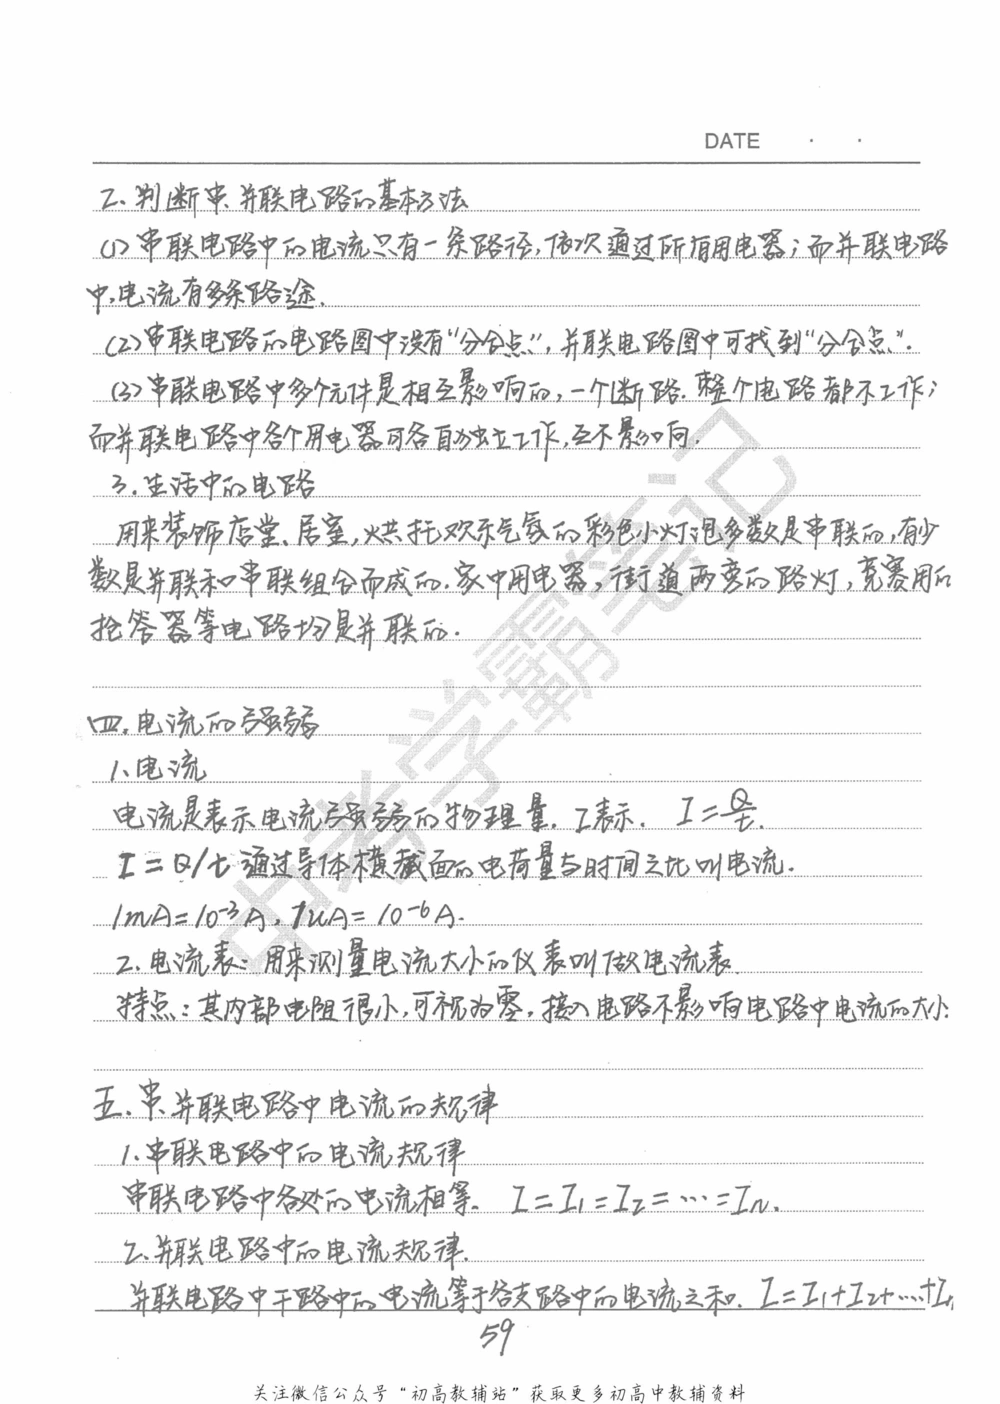 DATE · ·
2、判断串、并联电路的基本方法
(1)串联电路中的电流只有一条路径,依次通过所有用电器;而并联电路
中,电流有多条路途.
(2)串联电路的电路图中没有“分合点”,并联电路图中可找到“分合点”.
(3)串联电路中多个元件是相互影响的,一个断路.整个电路都不工作;
而并联电路中各个用电器可各自独立工作,互不影响.
3.生活中的电路
用来装饰店堂、居室,烘托欢乐气氛的彩色小灯泡多数是串联的,有少
数是并联和串联组合而成的.家中用电器,街道两旁的路灯,竞赛用的
抢答器等电路均是并联的.
四.电流的强弱
1、电流
电流是表示电流强弱的物理量. I表示. I=Q/t.
I=Q/t 通过导体横截面的电荷量与时间之比叫电流.
1mA=10⁻³A, 1uA=10⁻⁶A.
2.电流表:用来测量电流大小的仪表叫做电流表.
特点:其内部电阻很小,可视为零,接入电路不影响电路中电流的大小.
五.串、并联电路中电流的规律
1.串联电路中的电流规律
串联电路中各处的电流相等. I=I₁=I₂=…=IN.
2.并联电路中的电流规律.
并联电路中干路中的电流等于各支路中的电流之和. I=I₁+I₂+…+In
59
中考学霸笔记
关注微信公众号“初高教辅站”获取更多初高中教辅资料